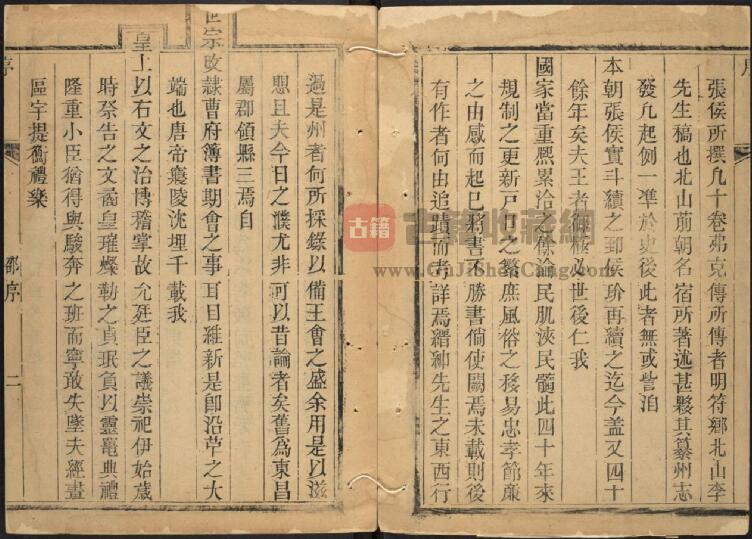 張侯所撰凡十卷弗克傳所傳者明符鄉北山李
先生稿也北山前朝名宿所著述甚夥其纂州志
發凡起例一準於史後此者無或訾洎
本朝張侯實斗續之郅侯玠再續之迄今蓋又四十
餘年矣夫王者御極必世後仁我
國家當重熙累洽之餘淪民肌浹民髓此四十年來
規制之更新戶口之繁庶風俗之移易忠孝節廉
之由感而起已將書不勝書倘使闕焉未載則後
有作者何由追蹟而考詳焉縉紳先生之東西行
過是州者何所採錄以備王會之盛余用是以滋
惄且夫今日之濮尤非可以昔論者矣舊為東昌
屬郡領縣三焉自
世宗改隸曹府簿書期會之事耳目維新是卽沿革之大
端也唐帝寢陵沈埋千載我
皇上以右文之治博稽掌故允廷臣之議崇祀伊始歲
時祭告之文矞皇璀燦勒之貞珉負以靈鼉典禮
隆重小臣猶得與駿奔之班而寧敢失墜夫經畫
區宇提衡禮樂
序
邵序
二
古籍
古籍收藏網
www.GuJiShouCang.com